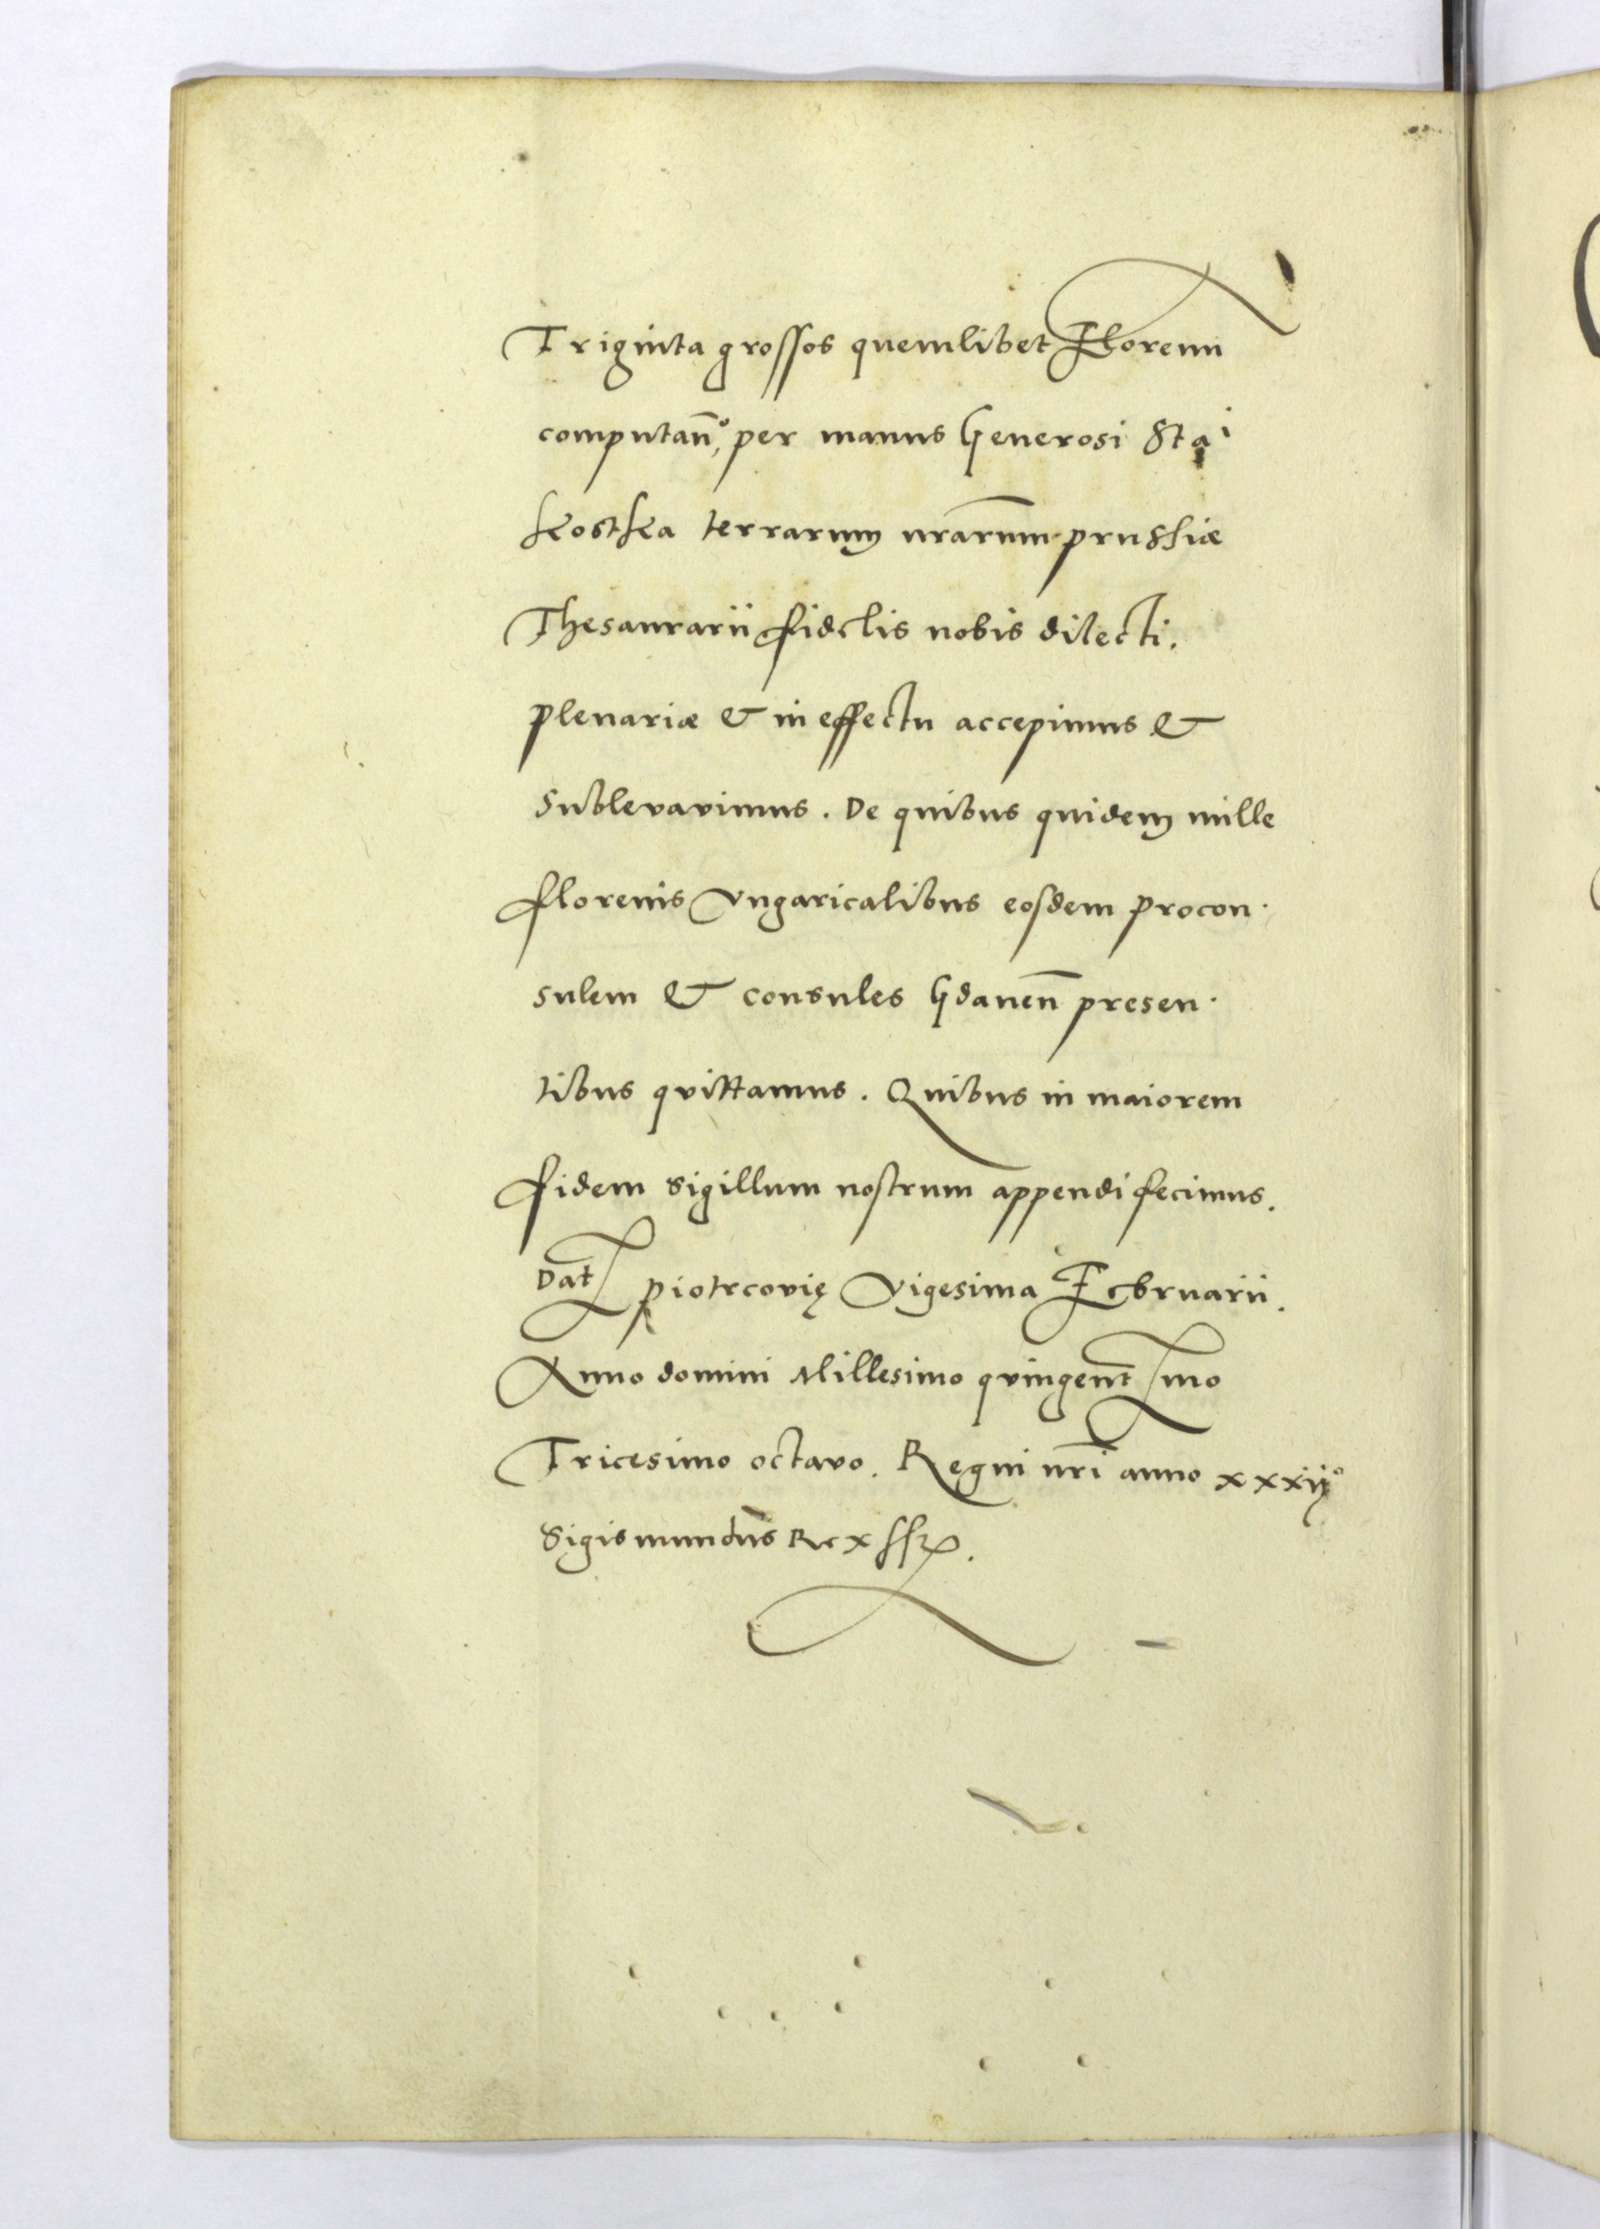 Triginta grossos quemlibet Florenu
computan̄°, per manus Generosi Stai
Kostka terrarum nr̄arum prussiæ
Thesaurarii fidelis nobis dilecti.
plenariæ & in effectu accepimus &
sublevavimus. De quibus quidem mille
florenis Vngaricalibus eosdem procon·
sulem & consules Gdanen̄ presen·
tibus quittamus. Quibus in maiorem
fidem sigillum nostrum appendi fecimus.
Dat piotrcovię Vigesima Februarii.
Anno domini Millesimo quingentmo
Tricesimo octavo. Regni nr̄i anno xxxij°
Sigismundus Rex sſꝫ.